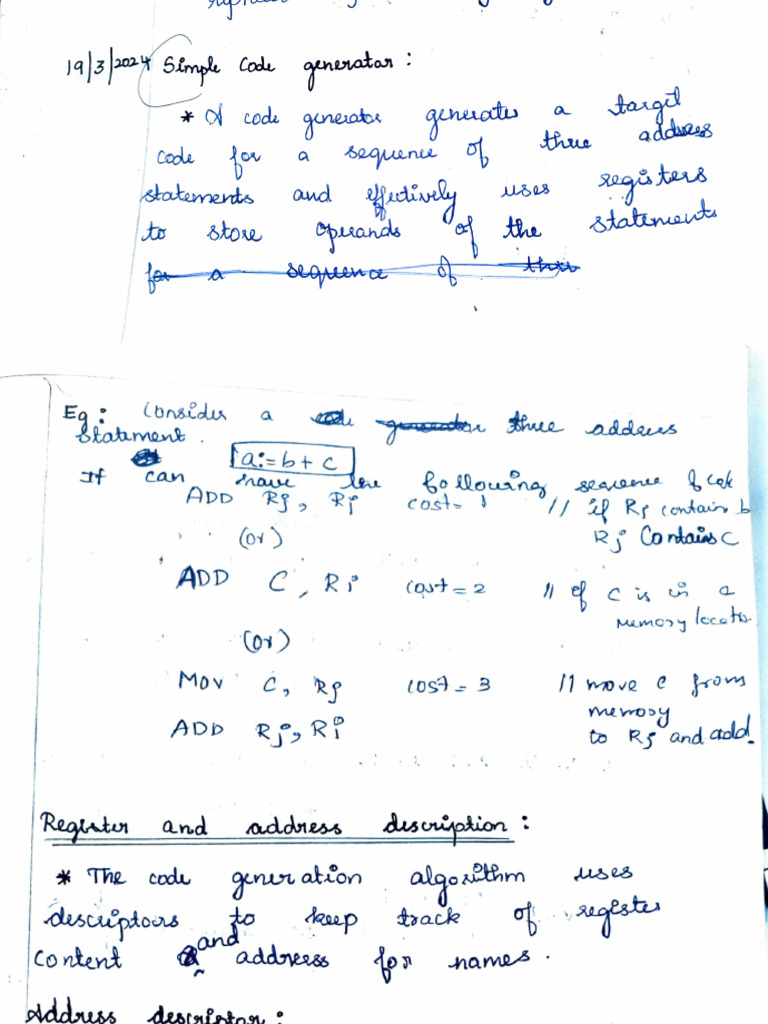 19/3/2024 Simple code generator :
* A code generator generates a target
code for a sequence of three address
statements and effectively uses registers
to store operands of the statements
for a sequence of three
Eg : Consider a code generator three address
statement.
a:= b + c
It can have the following sequence of code
ADD Rj, Ri cost = 1 // if Ri contains b
Rj Contains C
(or)
ADD C, Ri cost = 2 // if C is in a
memory locatio
(or)
Mov C, Rj cost = 3 // move C from
memory
ADD Rj, Ri to Rj and add.
Register and address description :
* The code generation algorithm uses
descriptors to keep track of register
content and address for names.
Address descriptor :